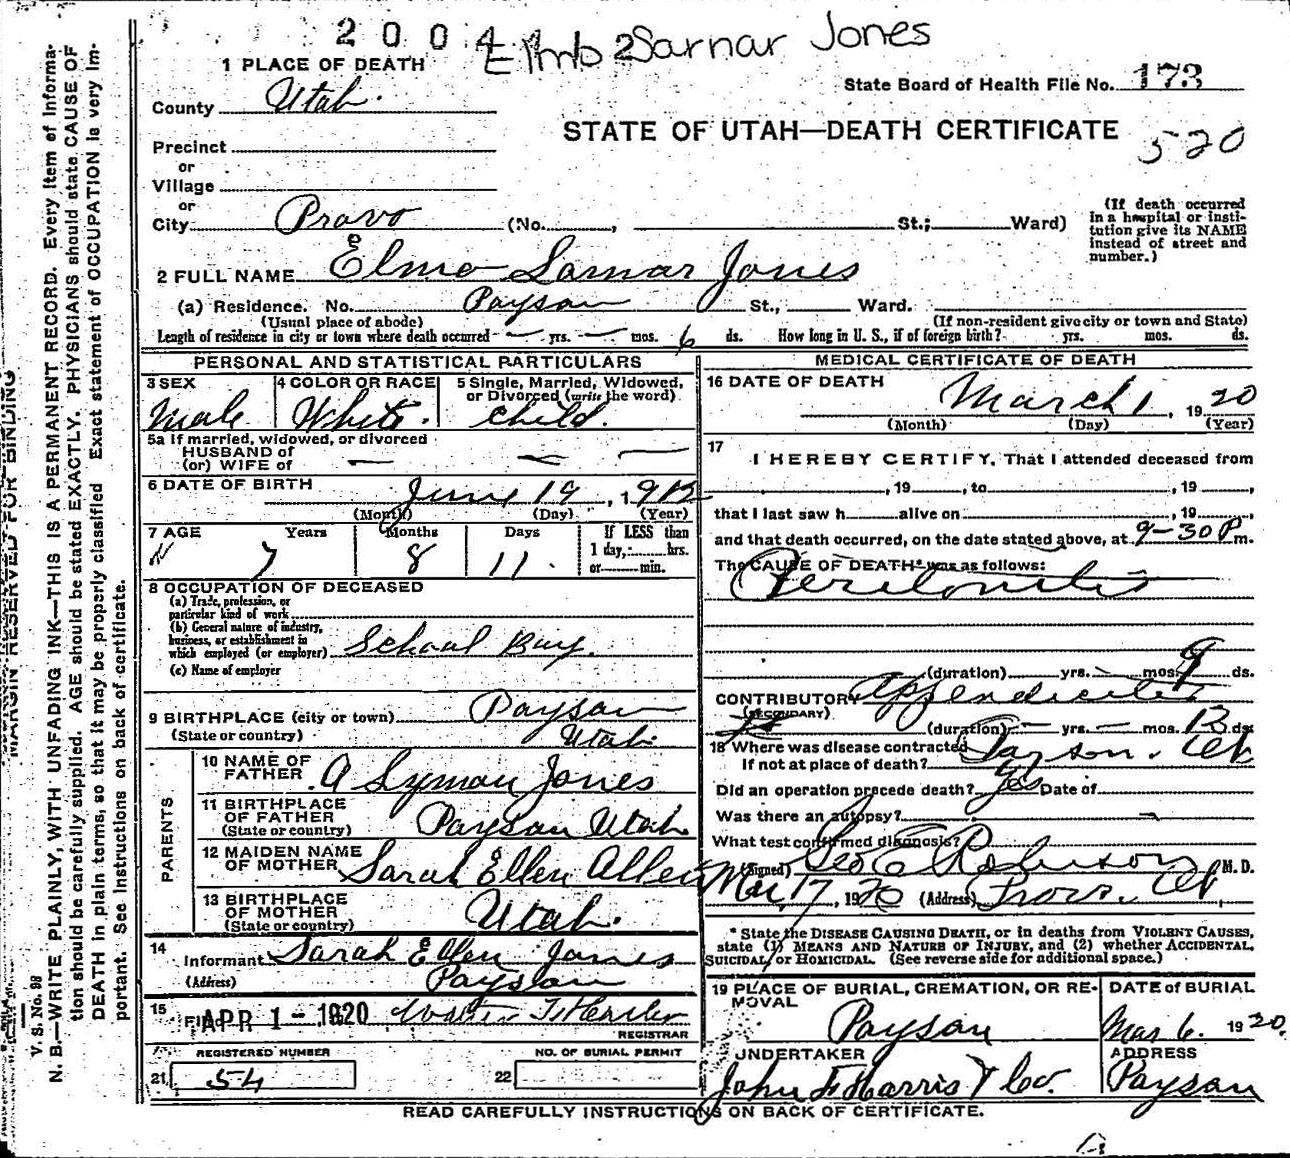 2 0 0 4 2
Elmo Sarnar Jones
1 PLACE OF DEATH
County Utah.
State Board of Health File No. 173
STATE OF UTAH—DEATH CERTIFICATE
520
Precinct
or
Village
or
City Provo (No. , St.; Ward)
(If death occurred
in a hospital or insti-
tution give its NAME
instead of street and
number.)
2 FULL NAME Elmo Sarnar Jones
(a) Residence. No. Payson St., Ward.
(Usual place of abode) (If non-resident give city or town and State)
Length of residence in city or town where death occurred — yrs. — mos. 6 ds. How long in U. S., if of foreign birth? yrs. mos. ds.
PERSONAL AND STATISTICAL PARTICULARS
3 SEX
Male
4 COLOR OR RACE
White.
5 Single, Married, Widowed,
or Divorced (write the word)
Child.
5a If married, widowed, or divorced
HUSBAND of
(or) WIFE of —
6 DATE OF BIRTH
June 19, 1912
(Month) (Day) (Year)
7 AGE Years Months Days If LESS than
7 8 11. 1 day, hrs.
or min.
8 OCCUPATION OF DECEASED
(a) Trade, profession, or
particular kind of work
(b) General nature of industry,
business, or establishment in
which employed (or employer) School Boy.
(c) Name of employer
9 BIRTHPLACE (city or town) Payson
(State or country) Utah.
PARENTS
10 NAME OF
FATHER A Lyman Jones
11 BIRTHPLACE
OF FATHER
(State or country) Payson Utah
12 MAIDEN NAME
OF MOTHER Sarah Ellen Allen
13 BIRTHPLACE
OF MOTHER
(State or country) Utah.
14
Informant Sarah Ellen Jones
(Address) Payson
15
Filed APR 1 - 1920
REGISTRAR
REGISTERED NUMBER
21 54
NO. OF BURIAL PERMIT
22
MEDICAL CERTIFICATE OF DEATH
16 DATE OF DEATH
March 1, 1920
(Month) (Day) (Year)
17
I HEREBY CERTIFY, That I attended deceased from
, 19 , to , 19 ,
that I last saw h alive on , 19 ,
and that death occurred, on the date stated above, at 9-30 P m.
The CAUSE OF DEATH* was as follows:
Peritonitis
(duration) yrs. — mos. 9 ds.
CONTRIBUTORY Appendicitis
(SECONDARY)
(duration) — yrs. — mos. 13 ds.
18 Where was disease contracted
If not at place of death? Payson. Ut
Did an operation precede death? Yes Date of
Was there an autopsy? —
What test confirmed diagnosis?
(Signed) Geo E Robinson M. D.
Mar, 17, 1920 (Address) Provo. Ut,
* State the DISEASE CAUSING DEATH, or in deaths from VIOLENT CAUSES,
state (1) MEANS AND NATURE OF INJURY, and (2) whether ACCIDENTAL,
SUICIDAL, or HOMICIDAL. (See reverse side for additional space.)
19 PLACE OF BURIAL, CREMATION, OR RE-
MOVAL
Payson
DATE of BURIAL
Mar 6. 1920.
UNDERTAKER
John F Harris & Co.
ADDRESS
Payson
READ CAREFULLY INSTRUCTIONS ON BACK OF CERTIFICATE.
MARGIN RESERVED FOR BINDING
V. S. No. 98
N. B.—WRITE PLAINLY, WITH UNFADING INK—THIS IS A PERMANENT RECORD. Every item of informa-
tion should be carefully supplied. AGE should be stated EXACTLY. PHYSICIANS should state CAUSE OF
DEATH in plain terms, so that it may be properly classified. Exact statement of OCCUPATION is very im-
portant. See instructions on back of certificate.